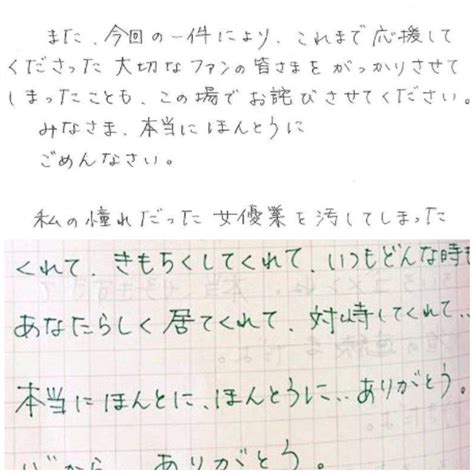 また、今回の一件により、これまで応援して
くださった大切なファンの皆さまをがっかりさせて
しまったことも、この場でお詫びさせてください。
みなさま、本当にほんとうに
ごめんなさい。
私の憧れだった女優業を汚してしまった
くれて、きもちくしてくれて、いつもどんな時も
あなたらしく居てくれて、対峙してくれて..
本当にほんとに、ほんとうに..ありがとう。
ありがとう。